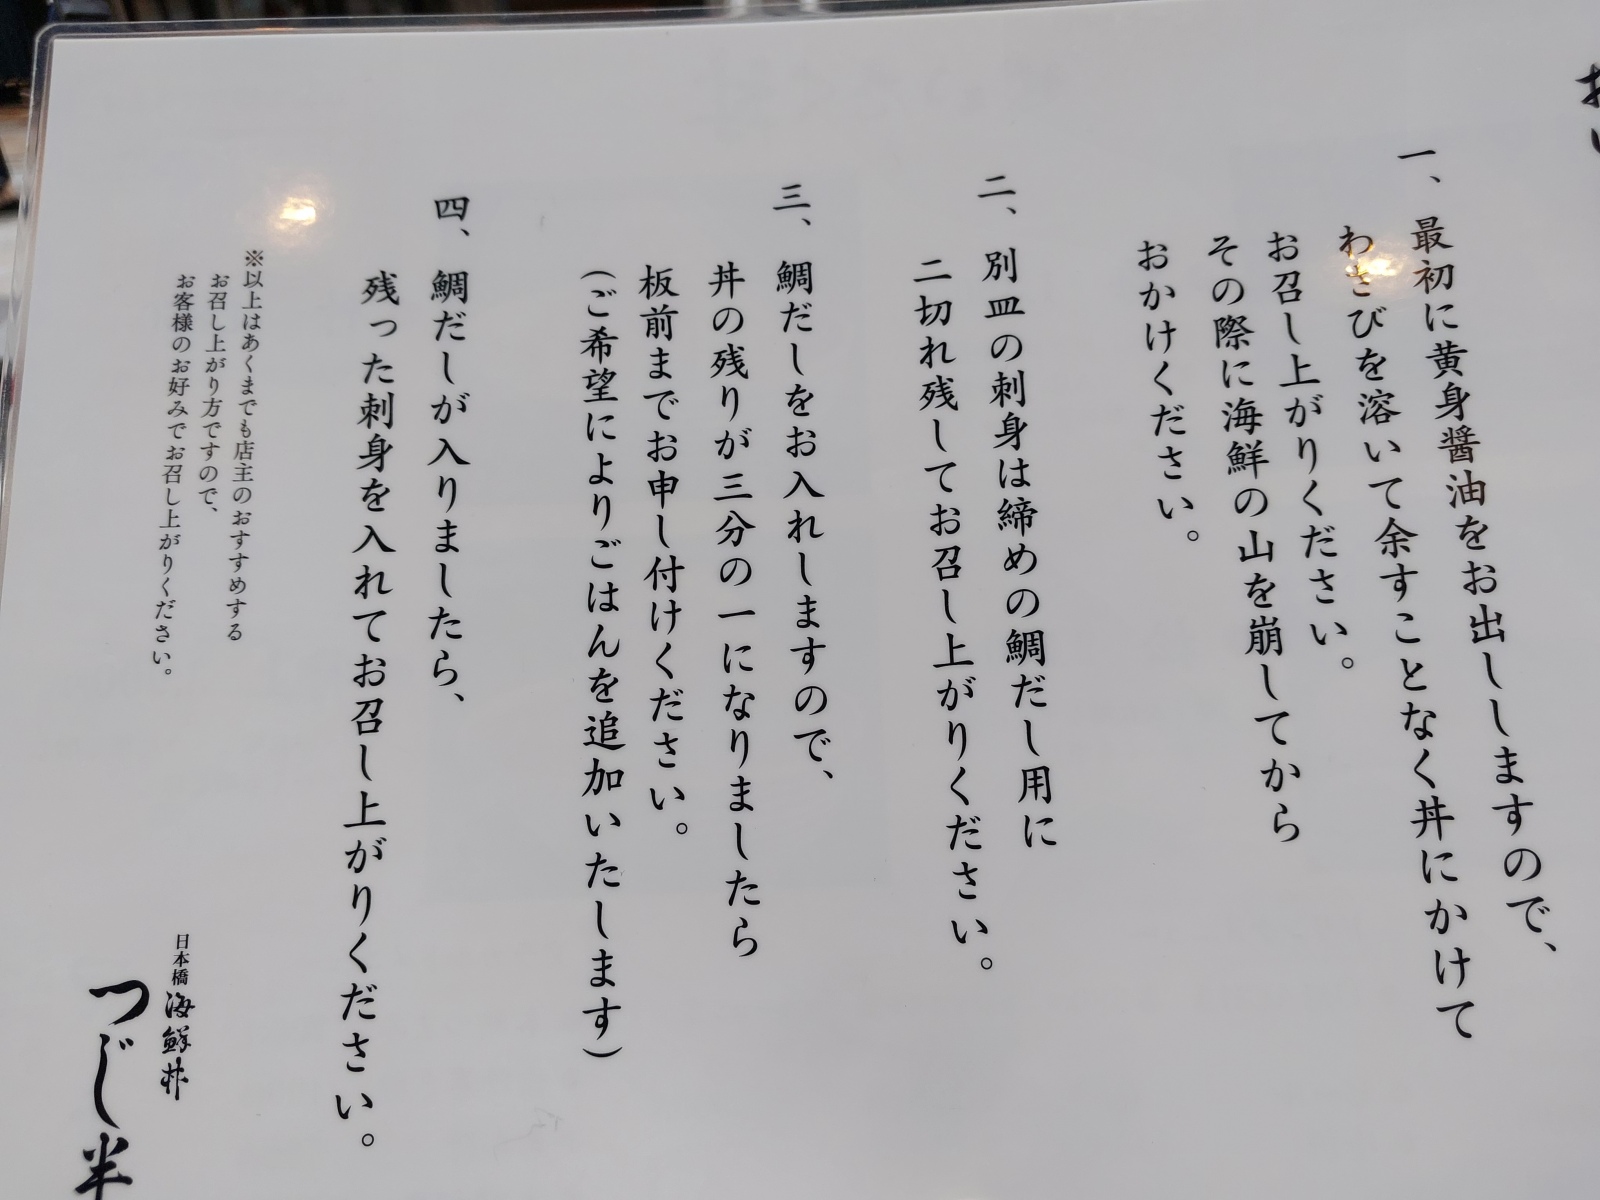 一、最初に黄身醤油をお出ししますので、
わさびを溶いて余すことなく丼にかけて
お召し上がりください。
その際に海鮮の山を崩してから
おかけください。
二、別皿の刺身は締めの鯛だし用に
二切れ残してお召し上がりください。
三、鯛だしをお入れしますので、
丼の残りが三分の一になりましたら
板前までお申し付けください。
(ご希望によりごはんを追加いたします)
四、鯛だしが入りましたら、
残った刺身を入れてお召し上がりください。
※以上はあくまでも店主のおすすめする
お召し上がり方ですので、
お客様のお好みでお召し上がりください。
日本橋海鮮丼
つじ半